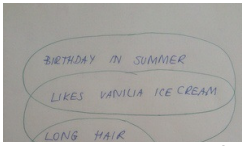 BIRTHDAY IN SUMMER
LIKES VANILIA ICE CREAM
LONG HAIR